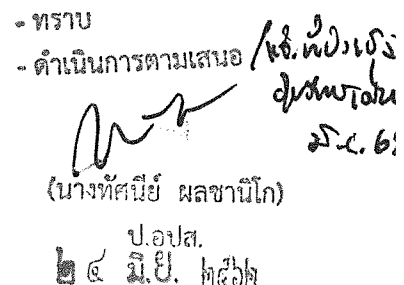 - ทราบ
- ดำเนินการตามเสนอ
(นางทัศนีย์ ผลชานิโก)
ป.อปส.
๒๔ มิ.ย. ๒๕๖๒